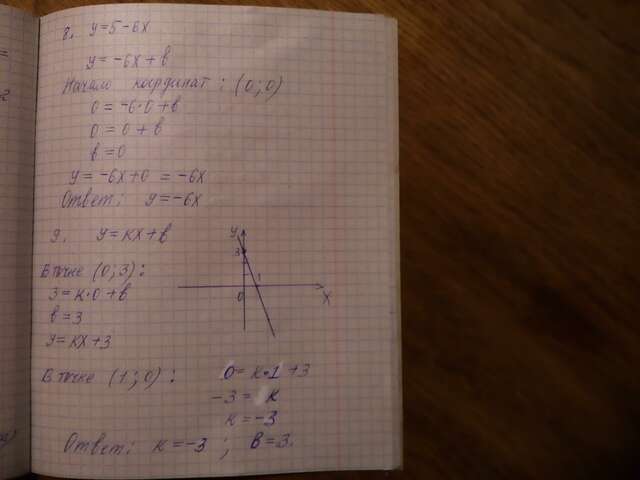 8. y=5-6x
y=-6x+b
Начало координат: (0;0)
0=-6·0+b
0=0+b
b=0
y=-6x+0=-6x
Ответ: y=-6x
9. y=kx+b
y
3
1
0
x
В точке (0;3):
3=k·0+b
b=3
y=kx+3
В точке (1;0): 0=k·1+3
-3=k
k=-3
Ответ: k=-3; b=3.